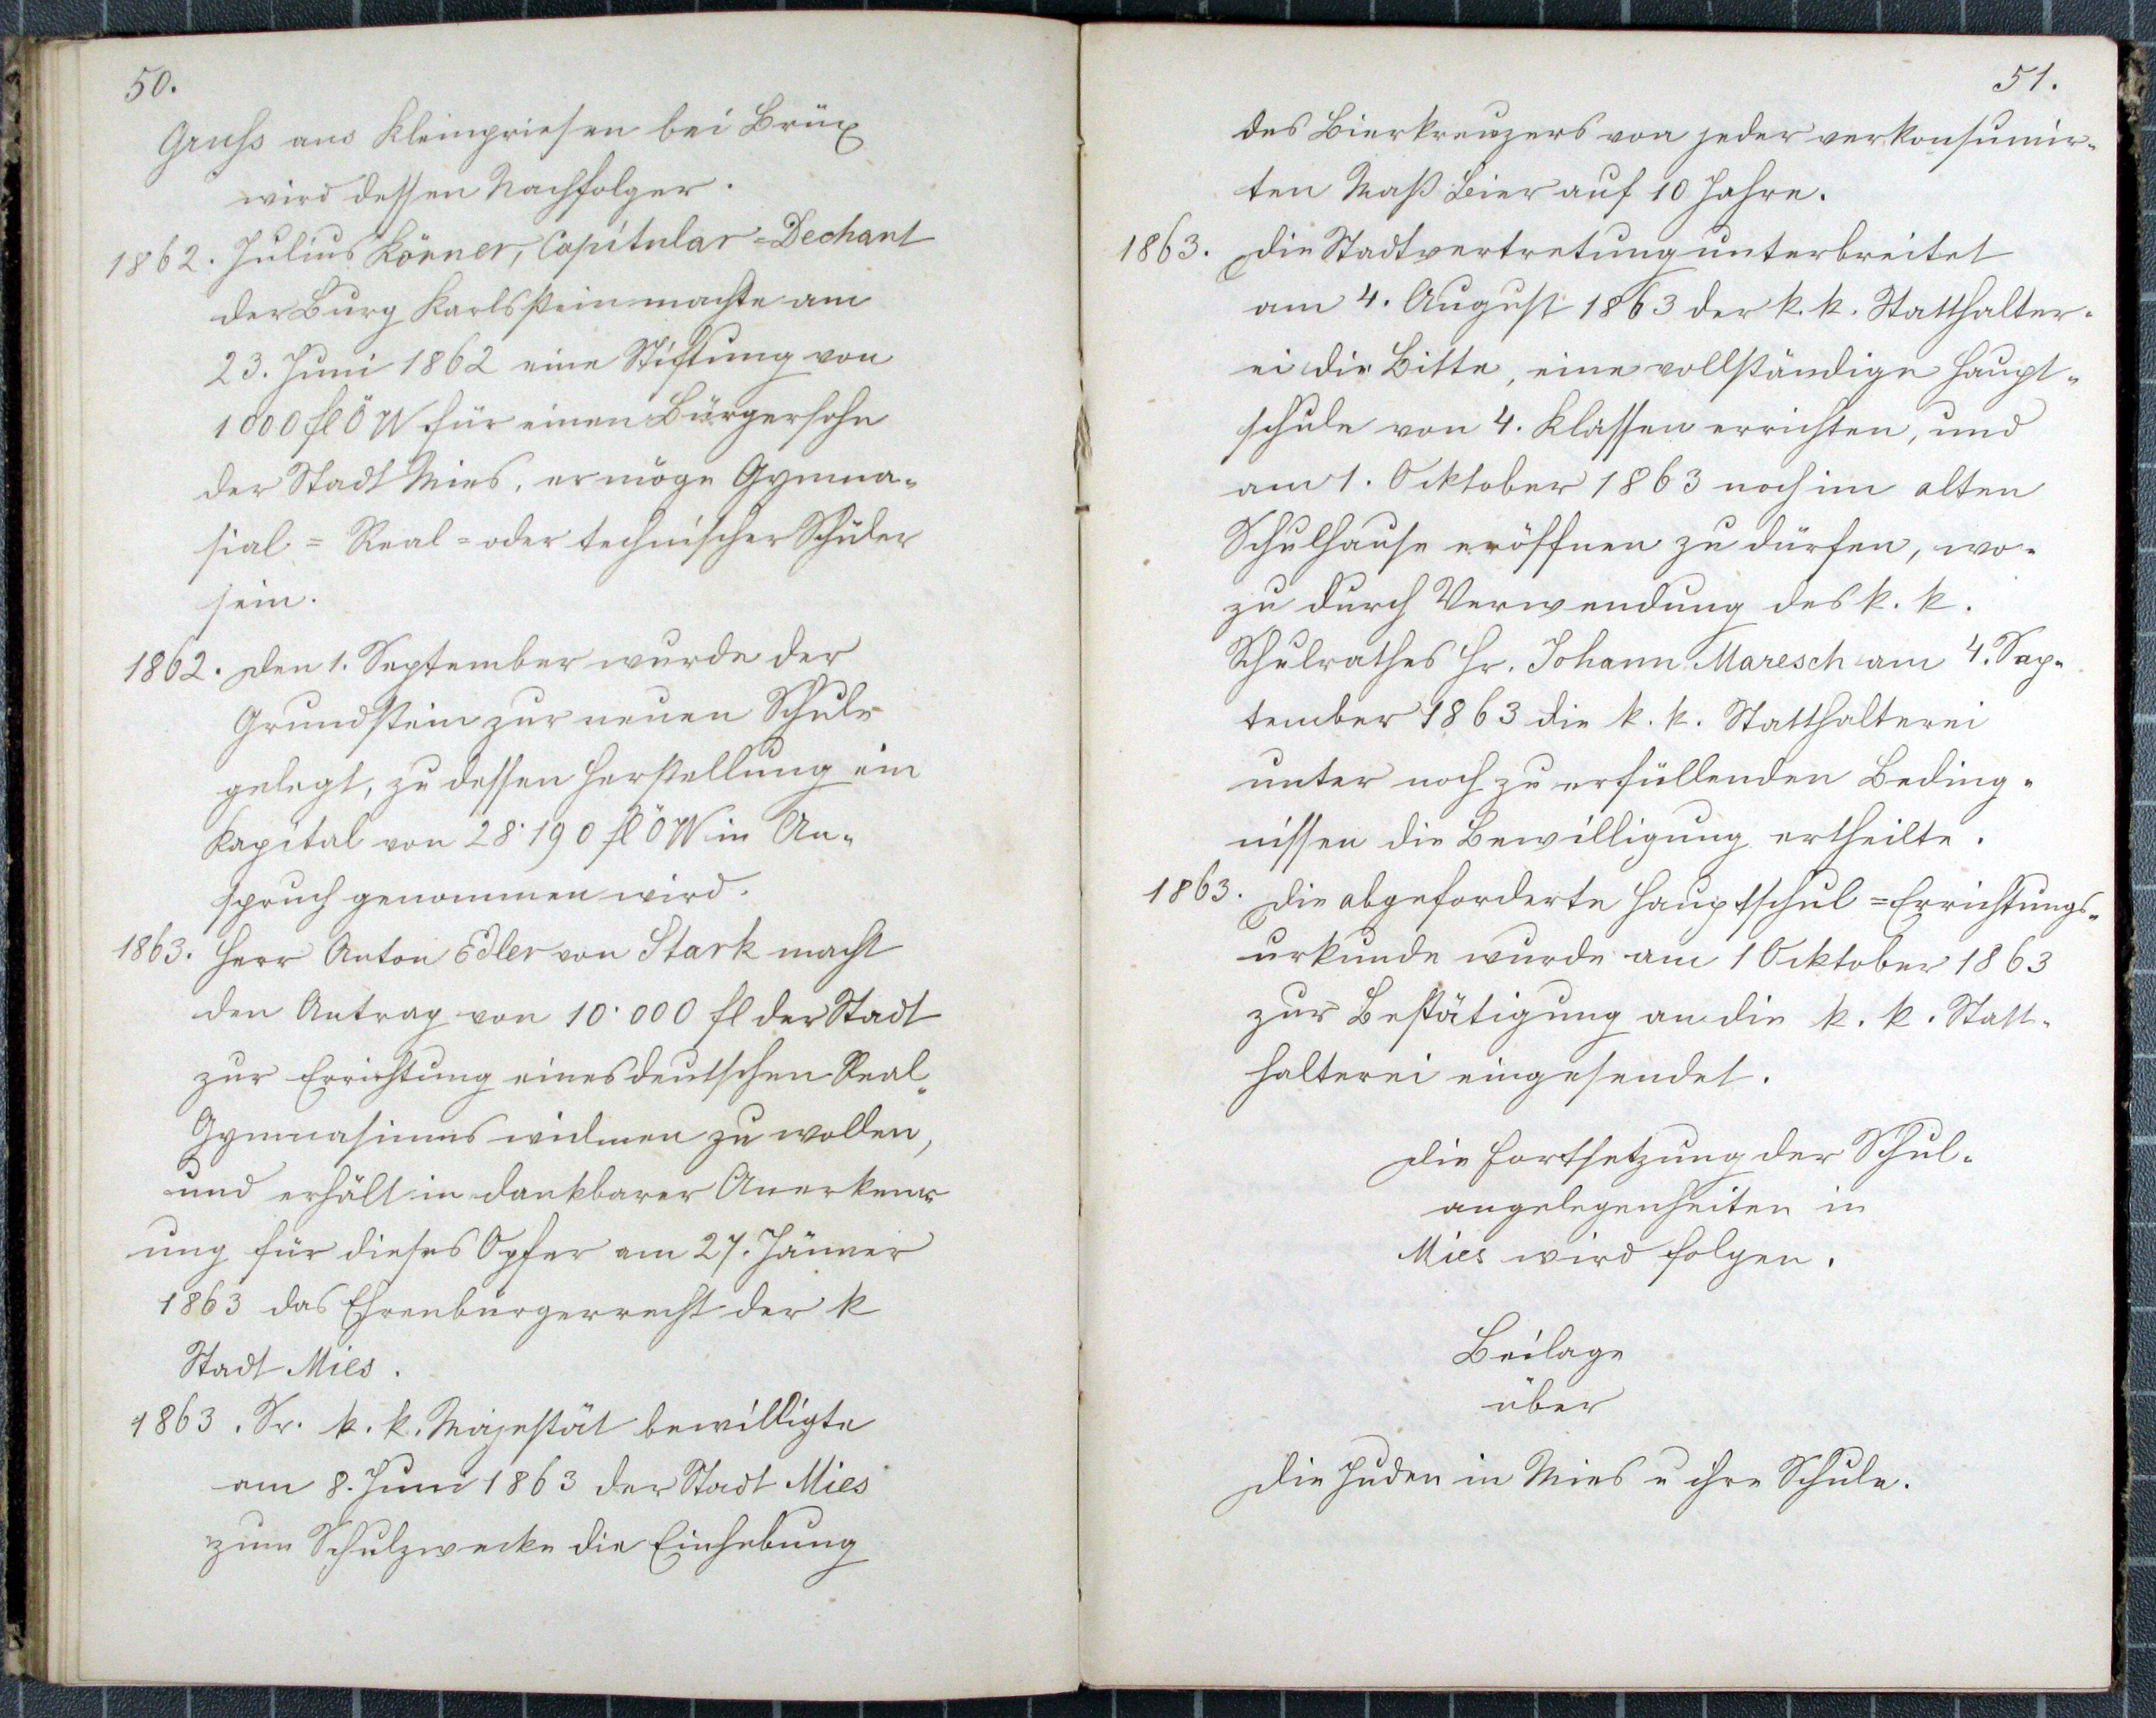 50.
Gruß aus Kleinpriesen bei Brüx
wird dessen Nachfolger.
1862. Julius Körner, Capitular=Dechant
der Burg Karlsstein machte am
23. Juni 1862 eine Stiftung von
1000 fl Ö W für einen Bürgersohn
der Stadt Mies, er möge Gymna-
sial= Real= oder technischer Schüler
sein.
1862. Den 1. September wurde der
Grundstein zur neuen Schule
gelegt, zu dessen Herstellung ein
Kapital von 28·190 fl Ö W in An-
spruch genommen wird.
1863. Herr Anton Edler von Stark macht
den Antrag von 10·000 fl der Stadt
zur Errichtung eines deutschen Real-
Gymnasiums widmen zu wollen,
und erhält in dankbarer Anerkenn
ung für dieses Opfer am 27. Jänner
1863 das Ehrenbürgerrecht der k
Stadt Mies.
1863. Sr. k. k. Majestät bewilligte
am 8. Juni 1863 der Stadt Mies
zum Schulzwecke die Einhebung
51.
des Bierkreuzers von jeder verkonsumir-
ten Maß Bier auf 10 Jahre.
1863. Die Stadtvertretung unterbreitet
am 4. August 1863 der k. k. Statthalter-
ei die Bitte, eine vollständige Haupt-
schule von 4. Klassen errichten, und
am 1. Ocktober 1863 noch im alten
Schulhause eröffnen zu dürfen, wo-
zu durch Verwendung des k. k.
Schulrathes Hr. Johann Maresch am 4. Sep-
tember 1863 die k. k. Statthalterei
unter noch zu erfüllenden Beding-
nissen die Bewilligung ertheilte.
1863. Die abgeforderte Hauptschul=Errichtungs-
urkunde wurde am 1 Ocktober 1863
zur Bestätigung an die k. k. Statt-
halterei eingesendet.
Die Fortsetzung der Schul-
angelegenheiten in
Mies wird folgen.
Beilage
über
Die Juden in Mies u ihre Schule.